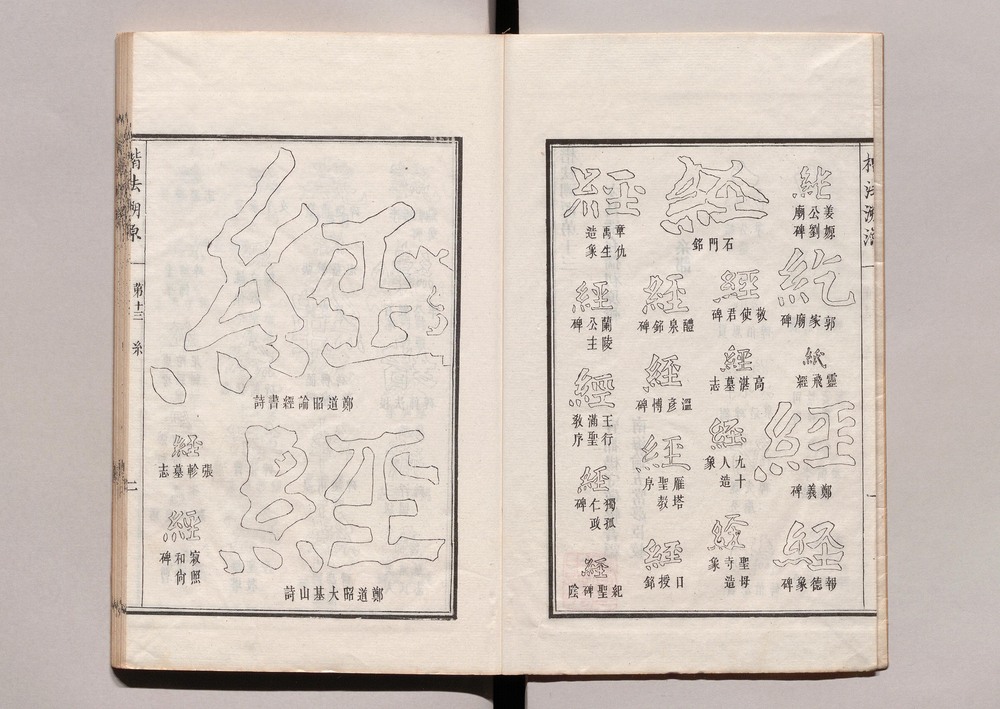 姜嫄
公劉
廟碑
郭家廟碑
靈飛經
經
鄭羲碑
經
報德象碑
經
敬使君碑
經
高湛墓志
經
九十
人造
象
經
聖母
寺造
象
經
石門銘
經
醴泉銘碑
經
溫彥博碑
經
雁塔
聖教
序
經
日授銘
經
章仇
禹生
造象
經
蘭陵
公主
碑
經
王行
滿聖
教序
經
獨孤
仁政
碑
經
紀聖碑陰
經
鄭道昭論經書詩
經
鄭道昭大基山詩
經
張軫墓志
經
寂照
和尚
碑
楷法溯原
第十三
糸
二